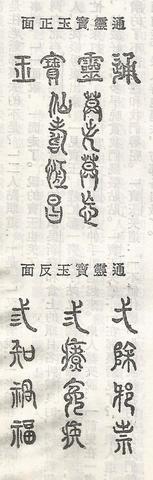 通靈寶玉正面
通靈寶玉
莫失莫忘
仙壽恆昌
通靈寶玉反面
弌除邪祟
弍療冤疾
弎知禍福